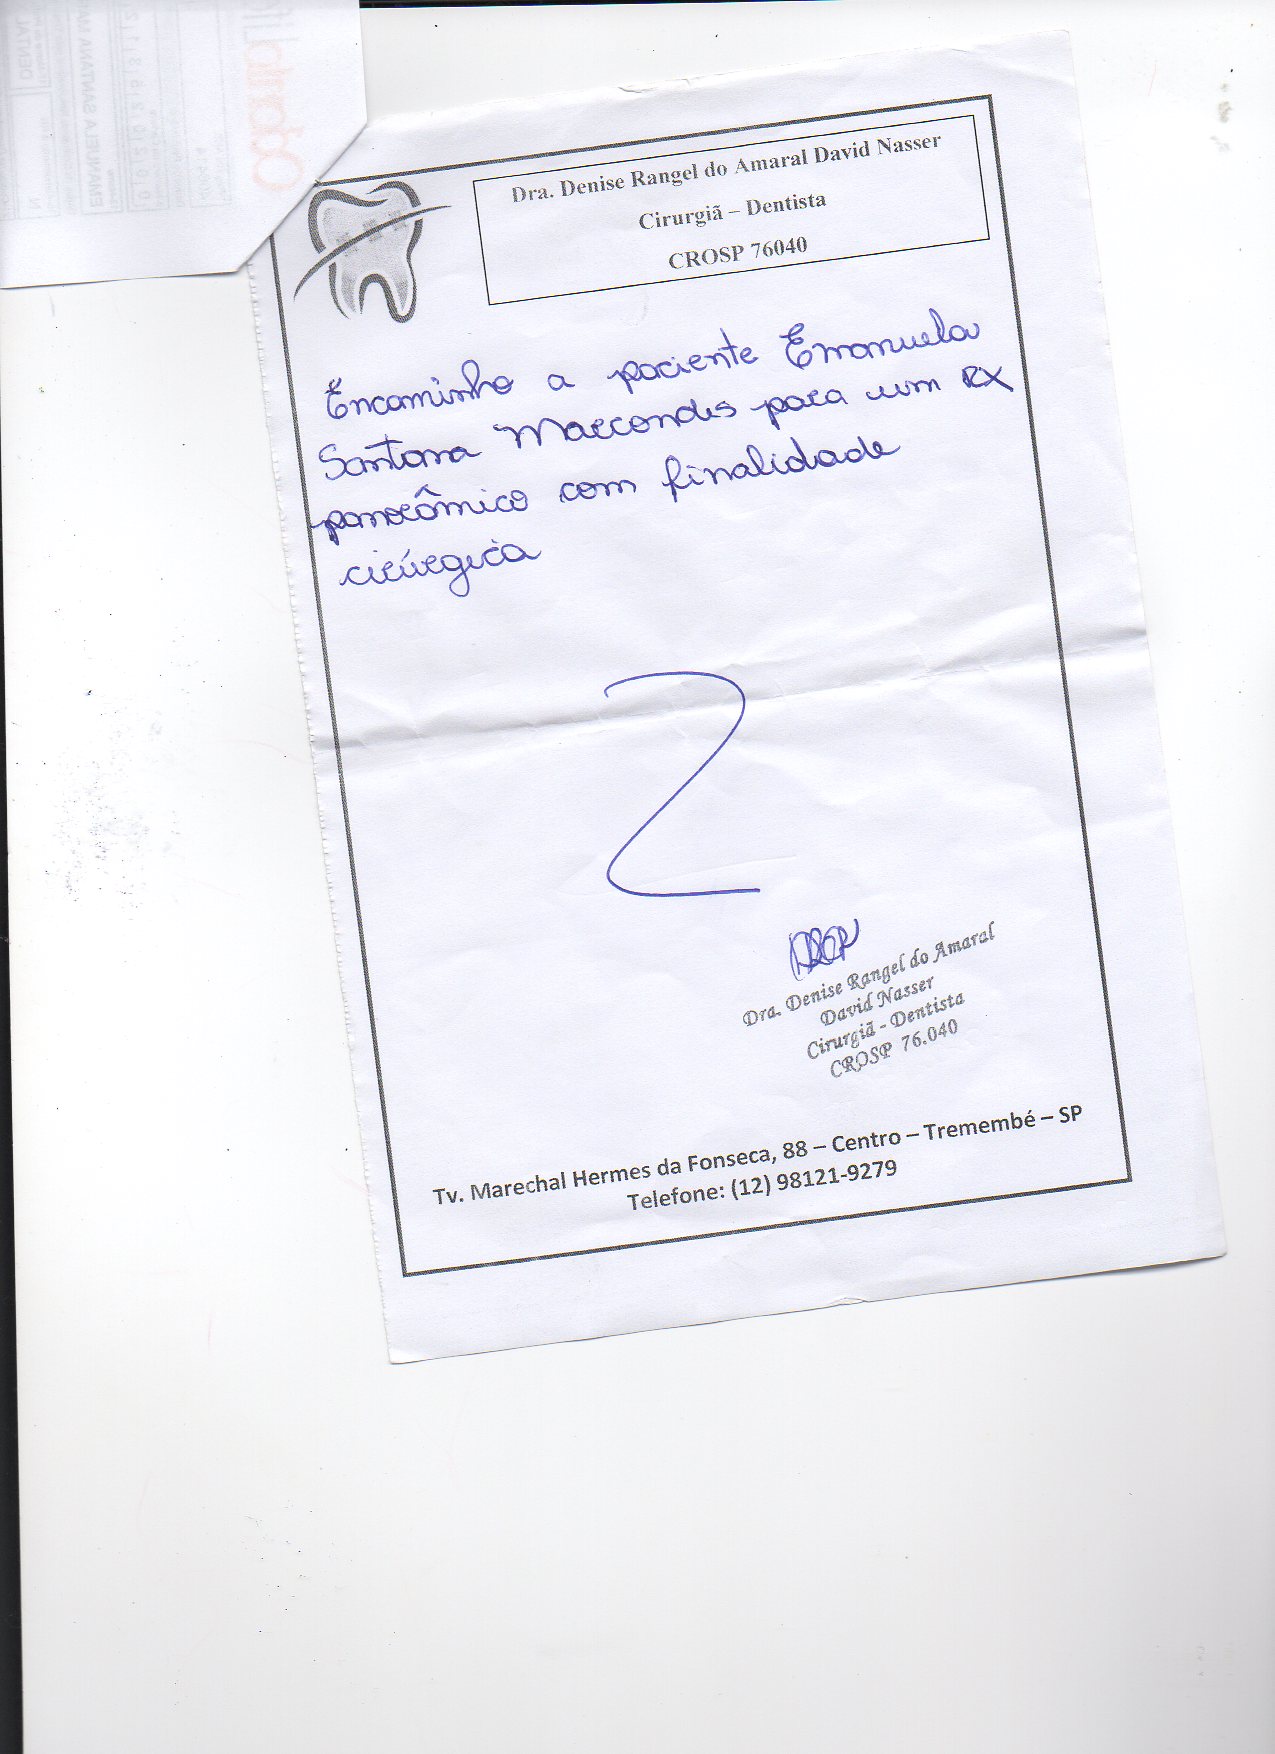 Dra. Denise Rangel do Amaral David Nasser
Cirurgiã – Dentista
CROSP 76040
Encaminho a paciente Emanuela
Santana Marcondes para um RX
panorâmico com finalidade
cirúrgica
Dra. Denise Rangel do Amaral
David Nasser
Cirurgiã - Dentista
CROSP 76.040
Tv. Marechal Hermes da Fonseca, 88 – Centro – Tremembé – SP
Telefone: (12) 98121-9279
DENTAL
EMANUELA SANTANA MA